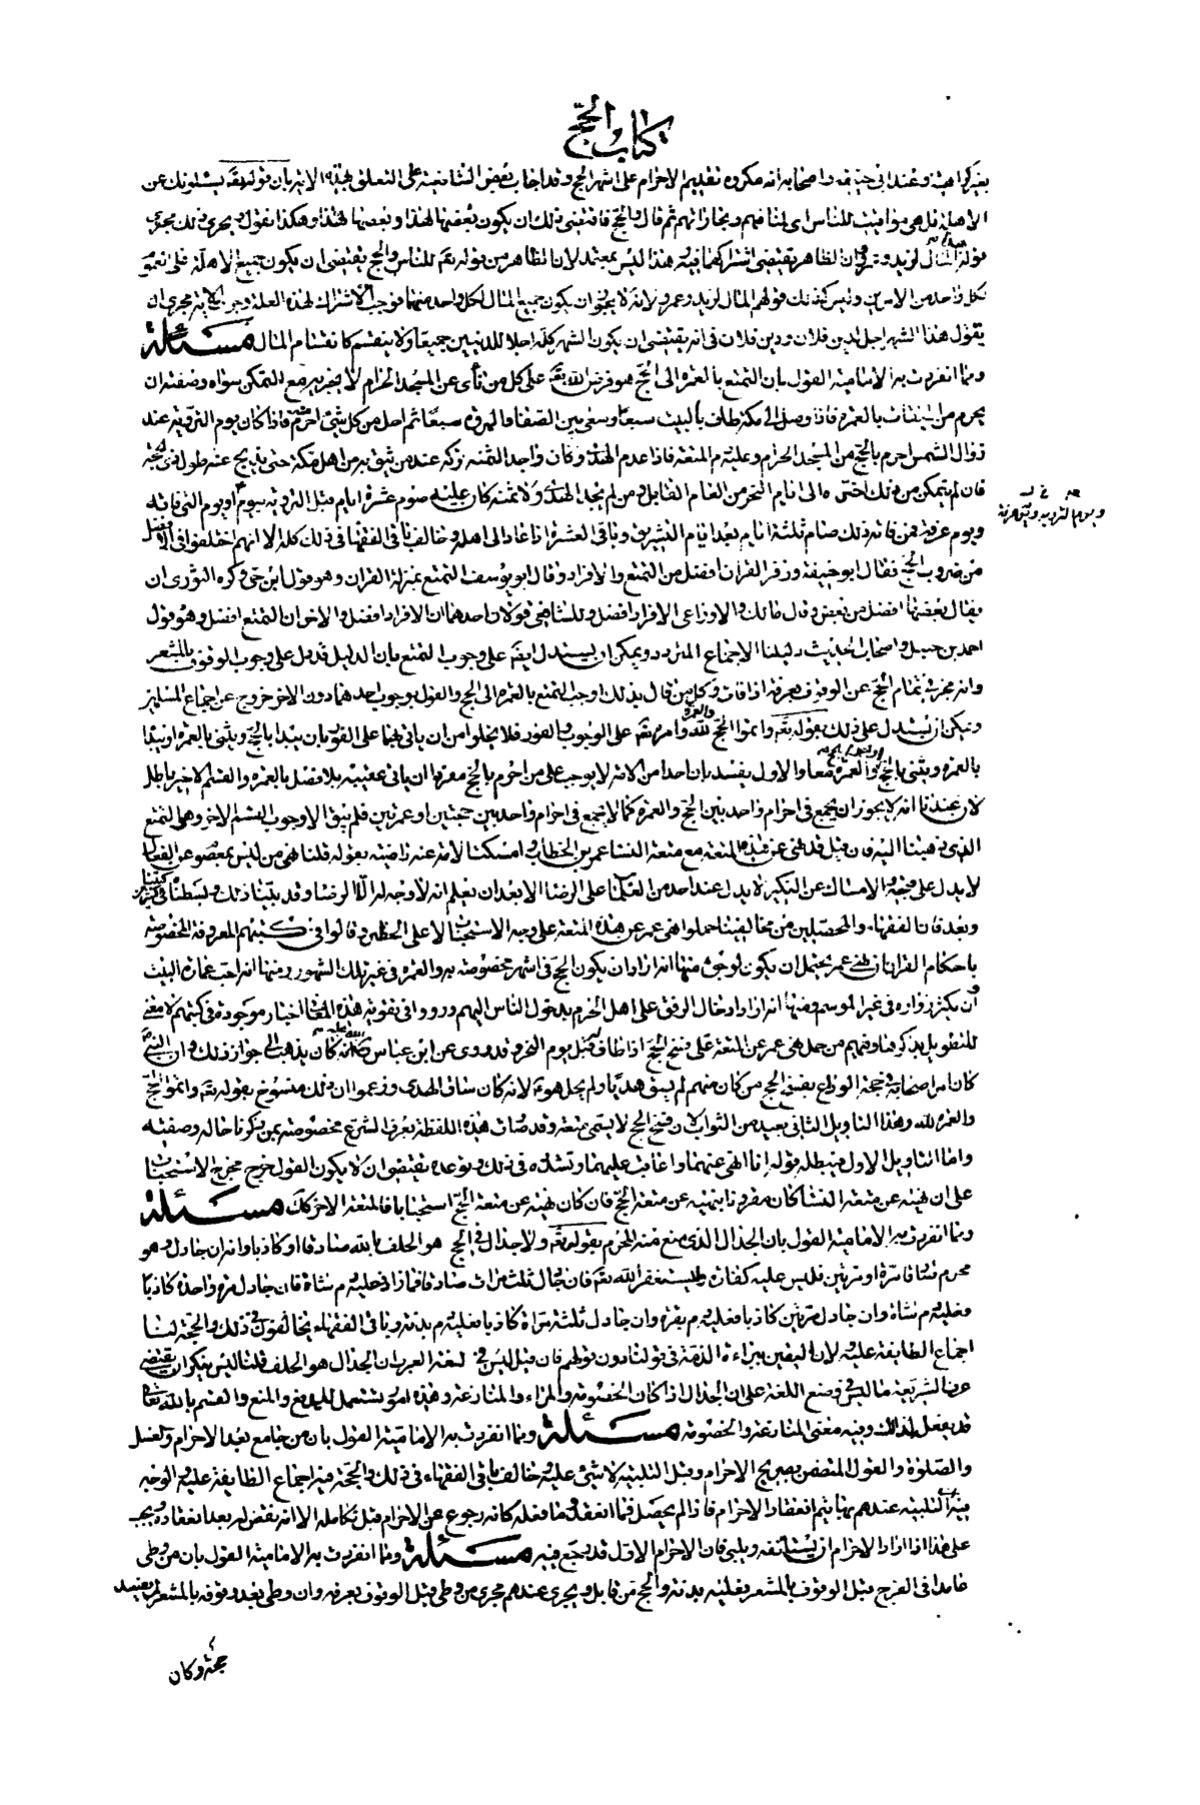 كتاب الحج
بغير كراهية وعند ابي حنيفة واصحابه انه مكروه تقديم الاحرام على اشهر الحج وقد اجاب بعض الشافعية على التعلق بهذه الاية بان قوله تعالى يسئلونك عن
الاهلة قل هي مواقيت للناس اي لمنافعهم وتجاراتهم ثم قال والحج فاقتضى ذلك ان يكون بعضها لهذا وبعضها لهذا وهكذا نقول ويجري ذلك مجرى
قوله المال لزيد وعمرو وان الظاهر يقتضي اشتراكهما فيه وهذا ليس بمعتمد لان الظاهر من قوله تعالى للناس والحج يقتضي ان يكون جميع الاهلة على العموم
لكل واحد من الامرين وليس كذلك قولهم المال لزيد وعمرو لانه لا يجوز ان يكون جميع المال لكل واحد منهما فوجب الاشتراك لهذه العلة وجرى الاية مجرى ان
يقول هذا الشهر اجل لدين فلان ودين فلان في انه يقتضي ان يكون الشهر كله اجلا للدينين جميعا ولا ينقسم كانقسام المال مسئلة
ومما انفردت به الامامية القول بان التمتع بالعمرة الى الحج هو فرض الله تعالى على كل من نأى عن المسجد الحرام لا يجزيه مع التمكن سواه وصفته ان
يحرم من الميقات بالعمرة فاذا وصل الى مكة طاف بالبيت سبعا وسعى بين الصفا والمروة سبعا ثم احل من كل شيء احرم منه فاذا كان يوم التروية عند
زوال الشمس احرم بالحج من المسجد الحرام وعليه دم المتعة فاذا عدم الهدى وكان واجدا لثمنه تركه عند من يثق به من اهل مكة حتى يذبح عنه طول ذي الحجة
فان لم يتمكن من ذلك اخره الى ايام النحر من العام القابل ومن لم يجد الهدى ولا ثمنه كان عليه صوم عشرة ايام قبل التروية بيوم ويوم التروية
ويوم التروية ويوم عرفة
ويوم عرفة فمن فاته ذلك صام ثلثة ايام بعد ايام التشريق وباقي العشرة اذا عاد الى اهله وخالف باقي الفقهاء في ذلك كله الا انهم اختلفوا في الافضل
من ضروب الحج فقال ابو حنيفة وزفر القران افضل من التمتع والافراد وقال ابو يوسف التمتع بمنزلة القران وهو قول ابن حي وكره الثوري ان
يقال بعضها افضل من بعض وقال مالك والاوزاعي الافراد افضل وللشافعي قولان احدهما ان الافراد افضل والاخر ان التمتع افضل وهو قول
احمد بن حنبل واصحاب الحديث دليلنا الاجماع المتردد ويمكن ان يستدل ايضا على وجوب التمتع بان الدليل قد دل على وجوب الوقوف بالمشعر
وانه مجز في تمام الحج عن الوقوف بعرفة اذا فات وكل من قال بذلك اوجب التمتع بالعمرة الى الحج والقول بوجوب احدهما دون الاخر خروج عن اجماع المسلمين
ويمكن ان يستدل على ذلك بقوله تعالى واتموا الحج والعمرة لله وامره تعالى على الوجوب والفور فلا يخلوا من ان ياتي بهما على الفور بان يبدأ بالحج ويثني بالعمرة او يبدأ
بالعمرة ويثني بالحج او يحرم بالحج والعمرة معا والاول يفسد بان احدا من الامة لا يوجب على من احرم بالحج مفردا ان ياتي عقيبه بلا فصل بالعمرة والقسم الاخير باطل
لان عندنا انه لا يجوز ان يجمع في احرام واحد بين الحج والعمرة كما لا يجمع في احرام واحد بين حجتين او عمرتين فلم يبق الا وجوب القسم الاخر وهو التمتع
الذي ذهبنا اليه فان قيل قد نهى عن هذه المتعة مع متعة النساء عمر بن الخطاب وامسكت الامة عنه راضية بقوله قلنا نهى من ليس بمعصوم عن الفعل
لا يدل على قبحه والامساك عن النكير لا يدل عند احد من العلماء على الرضا الا بعد ان يعلم انه لا وجه له الا الرضا وقد بينا ذلك وبسطناه في كثير من كتبنا
وبعد فان الفقهاء والمحصلين من مخالفينا حملوا نهي عمر عن هذه المتعة على وجه الاستحباب لا على الحظر وقالوا في كتبهم المعروفة المخصوصة
باحكام القران ان نهي عمر يحتمل ان يكون لوجوه منها انه اراد ان يكون الحج في اشهر مخصوصة به والعمرة في غير تلك الشهور ومنها انه احب عمارة البيت
وان يكثر زواره في غير الموسم ومنها انه اراد ادخال الرفق على اهل الحرم بدخول الناس اليهم ورووا في تقوية هذه المعاني اخبار موجودة في كتبهم لا معنى
للتطويل بذكرها وفيهم من حمل نهي عمر عن المتعة على فسخ الحج اذا طاف له قبل يوم النحر وقد روى عن ابن عباس رضي الله عنه انه كان يذهب الى جواز ذلك وان النبي صلى الله عليه وآله
كان امر اصحابه في حجة الوداع بفسخ الحج من كان منهم لم يسق هديا ولم يحل هو لانه كان ساق الهدى وزعموا ان ذلك منسوخ بقوله تعالى واتموا الحج
والعمرة لله وهذا التاويل الثاني بعيد من الثواب لان فسخ الحج لا يسمى متعة وقد صارت هذه اللفظة بعرف الشرع مخصوصة بمن ذكرنا حاله وصفته
واما التاويل الاول فيبطله قوله انا انهى عنهما واعاقب عليهما وتشدده في ذلك وتوعده يقتضي ان لا يكون القول خرج مخرج الاستحباب
على ان نهيه عن متعة النساء كان مقرونا بنهيه عن متعة الحج فان كان نهيه عن متعة الحج استحبابا فالمتعة الاخرى كذلك مسئلة
ومما انفردت به الامامية القول بان الجدال الذي منع منه المحرم بقوله تعالى ولا جدال في الحج هو الحلف بالله صادقا او كاذبا وانه ان جادل وهو
محرم صادقا مرة او مرتين فليس عليه كفارة وليستغفر الله تعالى فان جادل ثلث مرات صادقا فما زاد فعليه دم شاة فان جادل مرة واحدة كاذبا
فعليه دم شاة وان جادل مرتين كاذبا فعليه دم بقرة وان جادل ثلثة مرات كاذبا فعليه دم بدنة وباقي الفقهاء يخالفون في ذلك والحجة لنا
اجماع الطائفة عليه ولان اليقين ببراءة الذمة في قولنا دون قولهم فان قيل ليس في لغة العرب ان الجدال هو الحلف قلنا ليس ينكر ان يقتضي
عرف الشريعة ما ليس في وضع اللغة على ان الجدال اذا كان الخصومة والمراء والمنازعة وهذه امور يستعمل للدفع والمنع والقسم بالله تعالى
قد يفعل لذلك وفيه معنى المنازعة والخصومة مسئلة ومما انفردت به الامامية القول بان من جامع بعد الاحرام وغسل
والصلوة والقول المتضمن بصريح الاحرام وقبل التلبية لا شيء عليه خالف باقي الفقهاء في ذلك والحجة فيه اجماع الطائفة عليه الوجه
فيه ان التلبية عندهم بها يتم انعقاد الاحرام فاذا لم يحصل فما انعقد وما فعله كانه رجوع عن الاحرام قبل تكامله لا انه نقض له بعد انعقاده ويجب
على هذا اذا اراد الاحرام ان يستأنفه ويلبي فان الاحرام الاول قد رجع فيه مسئلة ومما انفردت به الامامية القول بان من وطي
عامدا في الفرج قبل الوقوف بالمشعر فعليه بدنة والحج من قابل ويجري عندهم مجرى من وطي قبل الوقوف بعرفة وان وطي بعد وقوفه بالمشعر لم يفسد
حجه وكان